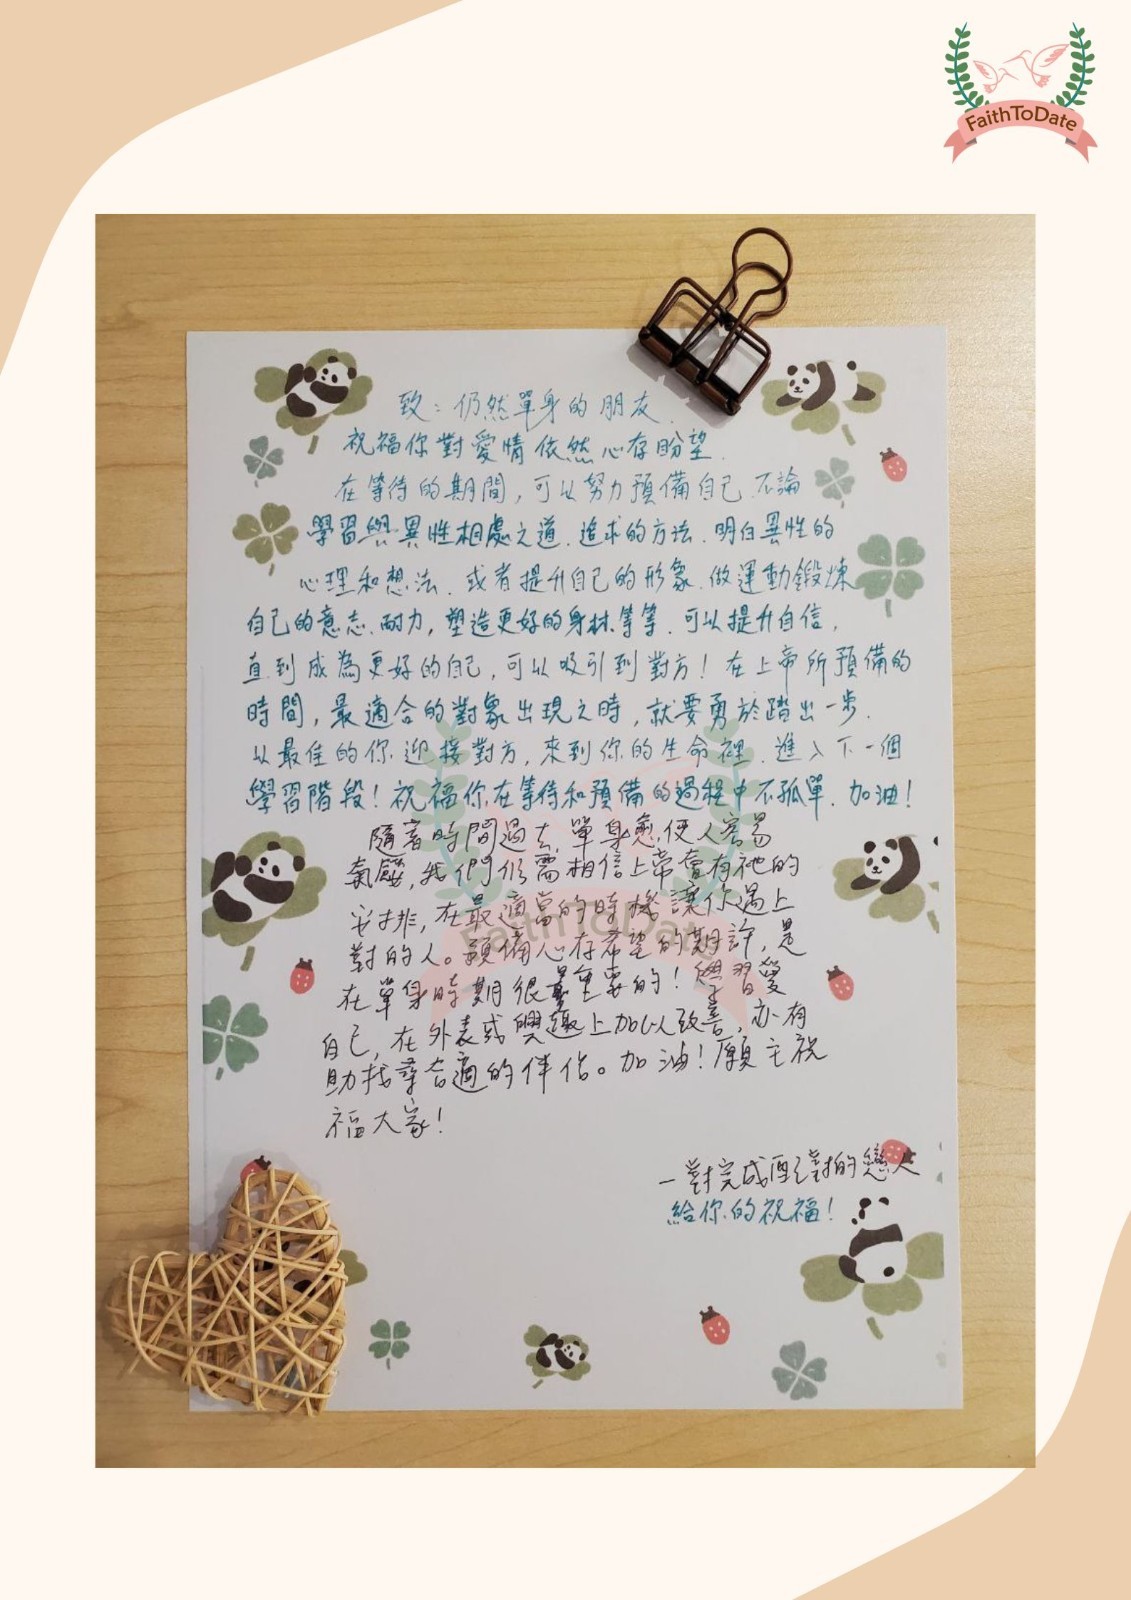 FaithToDate
致：仍然單身的朋友.
祝福你對愛情依然心存盼望.
在等待的期間，可以努力預備自己.不論
學習與異性相處之道.追求的方法.明白異性的
心理和想法.或者提升自己的形象.做運動鍛煉
自己的意志.耐力，塑造更好的身材.等等.可以提升自信，
直到成為更好的自己，可以吸引到對方！在上帝所預備的
時間，最適合的對象出現之時，就要勇於踏出一步.
以最佳的你迎接對方，來到你的生命裡.進入下一個
學習階段！祝福你在等待和預備的過程中不孤單.加油！
隨著時間過去，單身愈使人容易
氣餒，我們仍需相信上帝會有祂的
安排，在最適當的時機讓你遇上
對的人。預備心存希望的期許，是
在單身時期很重要的！學習愛
自己，在外表或興趣上加以改善，亦有
助找尋合適的伴侶。加油！願主祝
福大家！
一對完成配對的戀人
給你的祝福！
FaithToDate